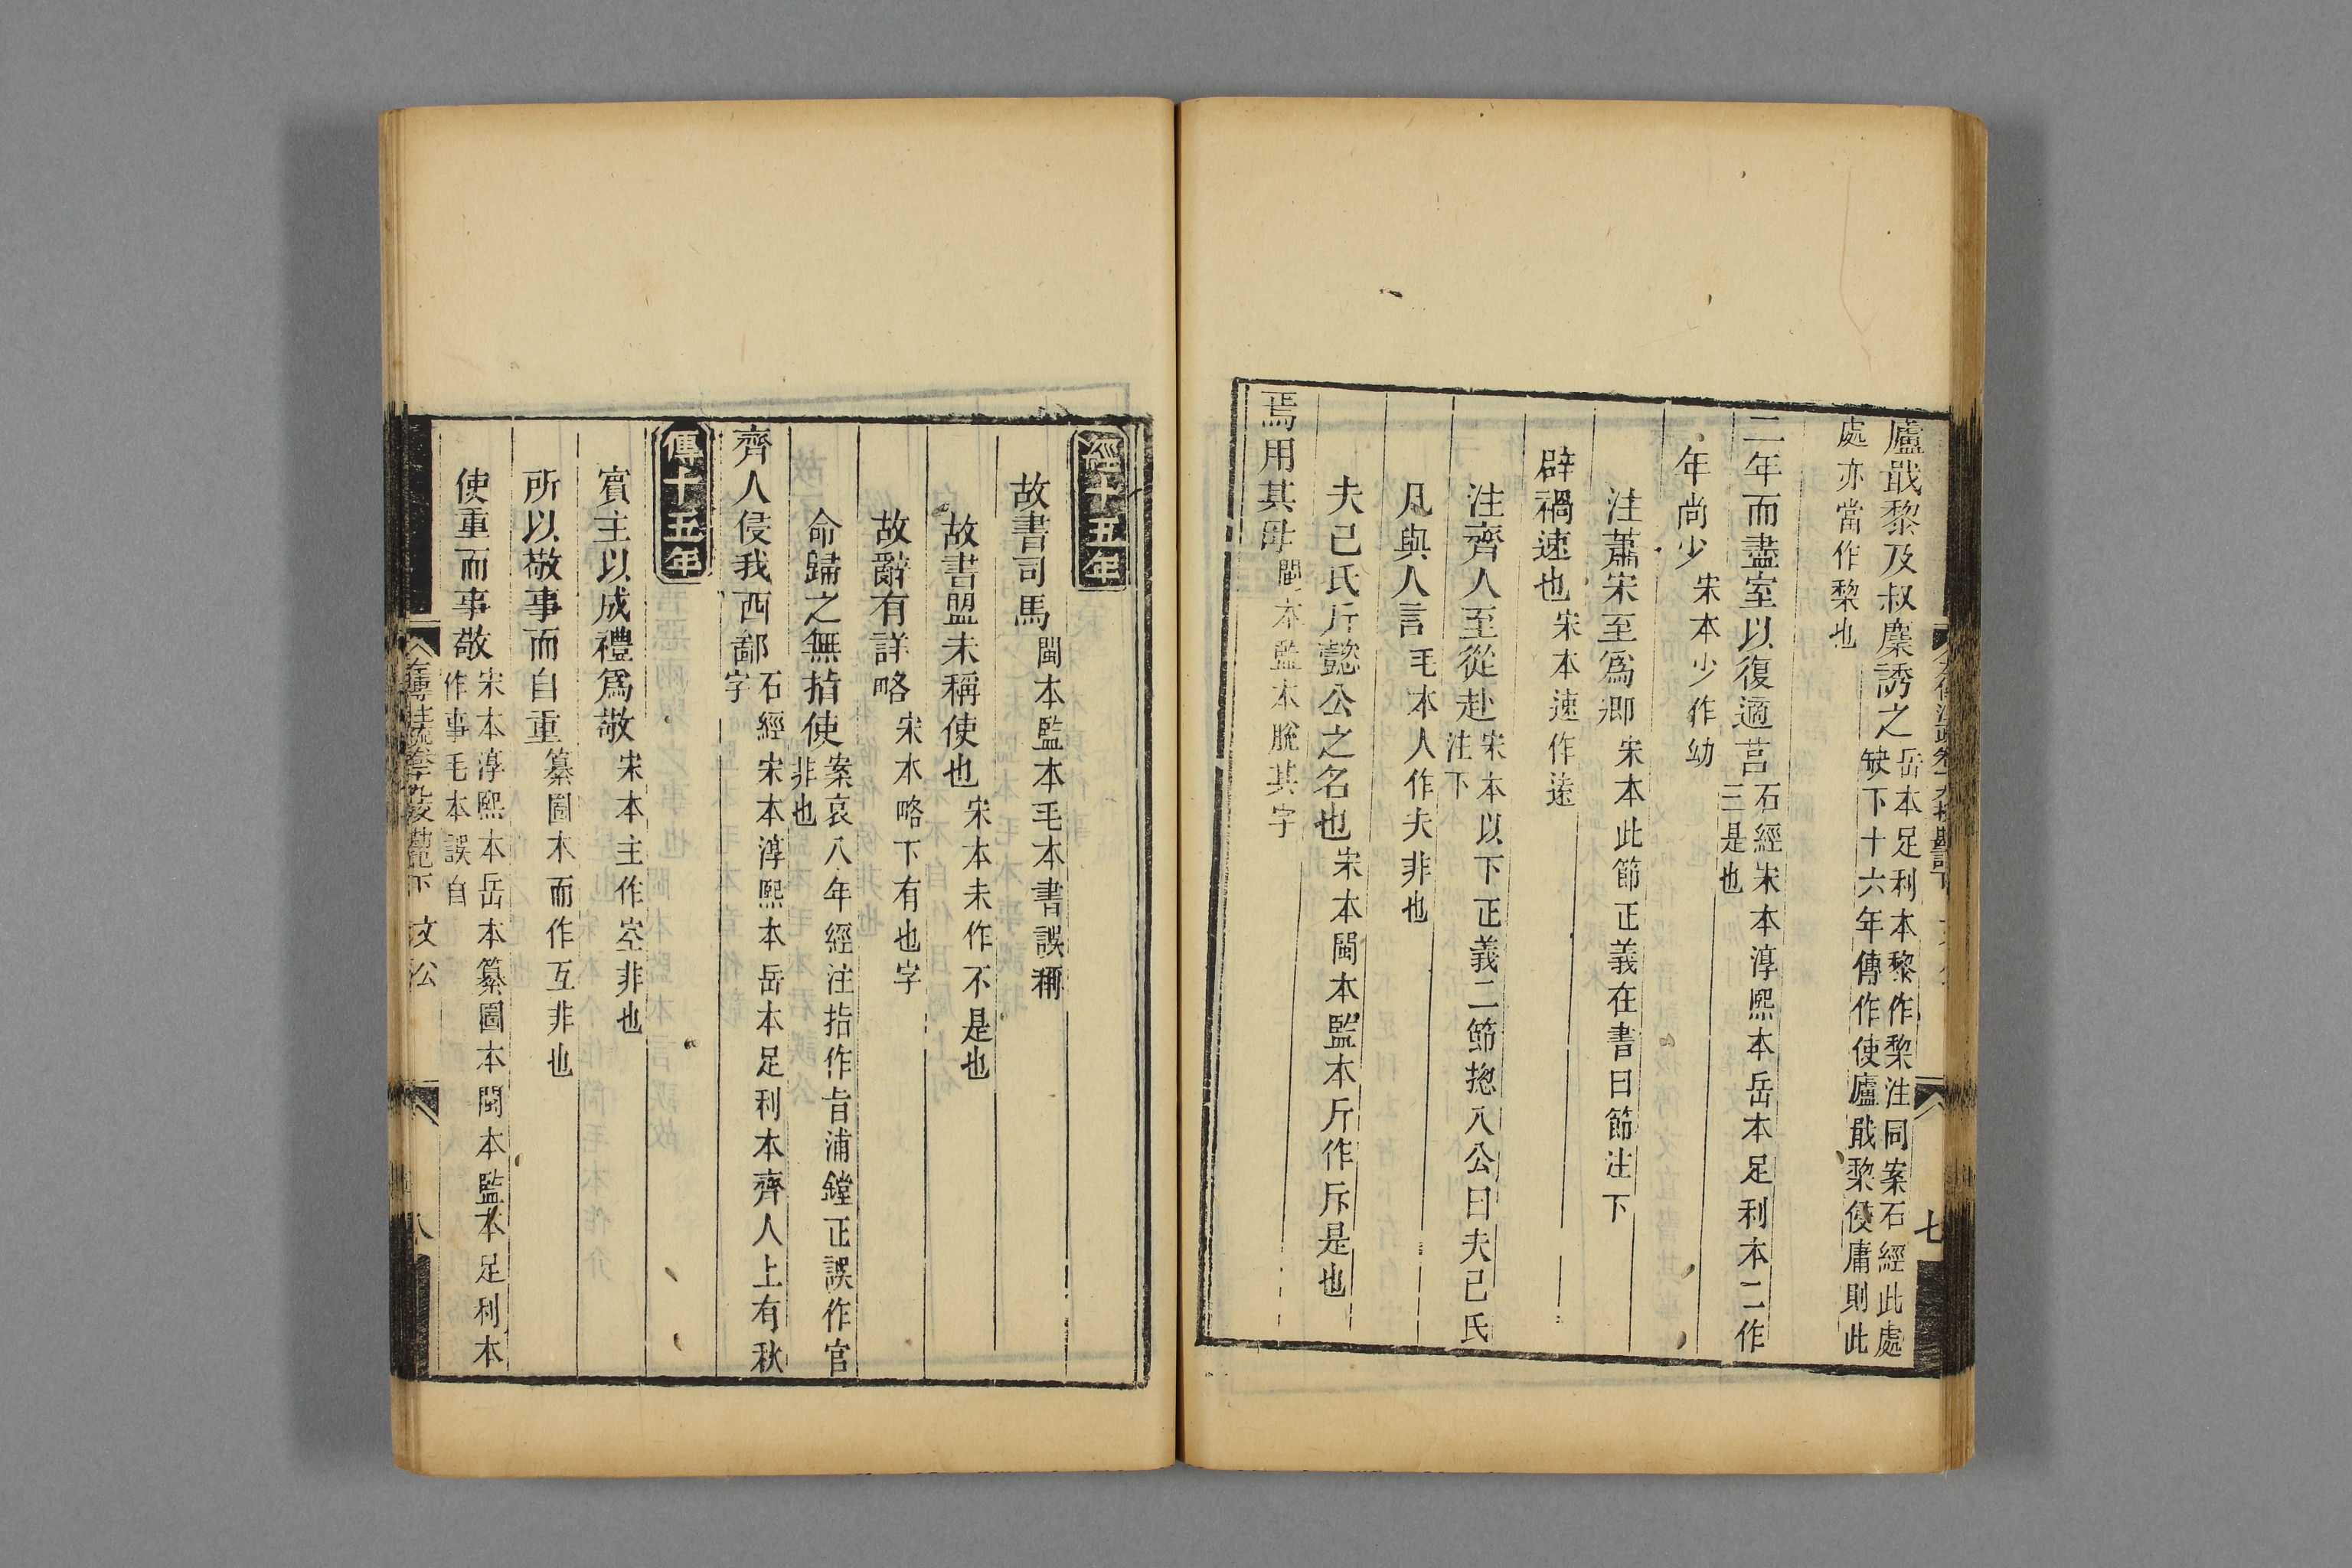 廬戢黎及叔麇誘之岳本足利本黎作棃注同案石經此處
缺下十六年傳作使廬戢棃侵庸則此
處亦當作棃也
二年而盡室以復適莒石經宋本淳熙本岳本足利本二作
三是也
年尚少宋本少作幼
注蕭宋至爲卿宋本此節正義在書曰節注下
辟禍速也宋本速作遠
注齊人至從赴宋本以下正義二節揔入公曰夫己氏
注下
凡與人言毛本人作夫非也
夫己氏斤懿公之名也宋本閩本監本斤作斥是也
焉用其母閩本監本脫其字
七
經十五年
故書司馬閩本監本毛本書誤稱
故書盟未稱使也宋本未作不是也
故辭有詳略宋本略下有也字
命歸之無指使案哀八年經注指作旨浦鏜正誤作官
非也
齊人侵我西鄙石經宋本淳熙本岳本足利本齊人上有秋
字
傳十五年
賓主以成禮爲敬宋本主作空非也
所以敬事而自重纂圖本而作互非也
使重而事敬宋本淳熙本岳本纂圖本閩本監本足利本
作事毛本誤自
八